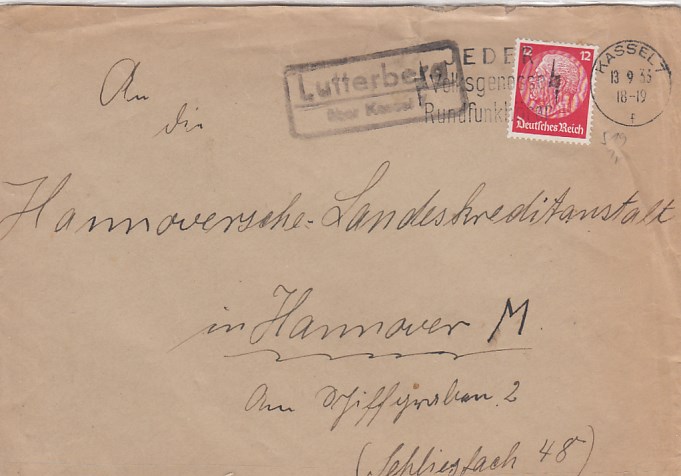 Lutterberg
über Kassel 7
JEDER
Volksgenosse
Rundfunkh
12 12
Deutsches Reich
KASSEL 7
13 9 35
18-19
f
An
die
Hannoversche-Landeskreditanstalt
in Hannover M.
Am Schiffgraben 2
(Schliesfach 48)